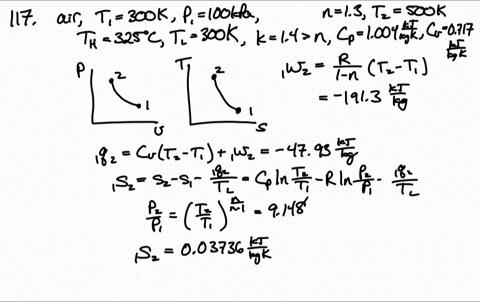 117. air, T₁=300K, P₁=100kPa, n=1.3, T₂=500K
T_H=325°C, T_L=300K, k=1.4>n, Cp=1.004 kJ/kgK, Cv=0.717 kJ/kgK
P 2 1 υ
T 2 1 s
₁W₂ = R/(1-n) (T₂-T₁)
= -191.3 kJ/kg
₁q₂ = Cv(T₂-T₁) + ₁W₂ = -47.93 kJ/kg
₁S₂ = S₂-S₁- ₁q₂/T_L = Cp ln T₂/T₁ - R ln P₂/P₁ - ₁q₂/T_L
P₂/P₁ = (T₂/T₁)^(n/(n-1)) = 9.148
₁S₂ = 0.03736 kJ/kgK